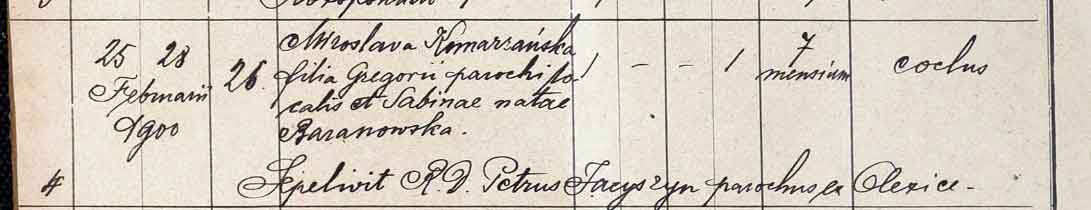 25 28 Februarii 1900
26.
Miroslava Komarzańska
filia Gregorii parochi lo
calis et Sabinae natae
Baranowska.
1 - - 1
7 mensium
coclus
4 Sepelivit R. D. Petrus Jacyszyn parochus ex Olezice -